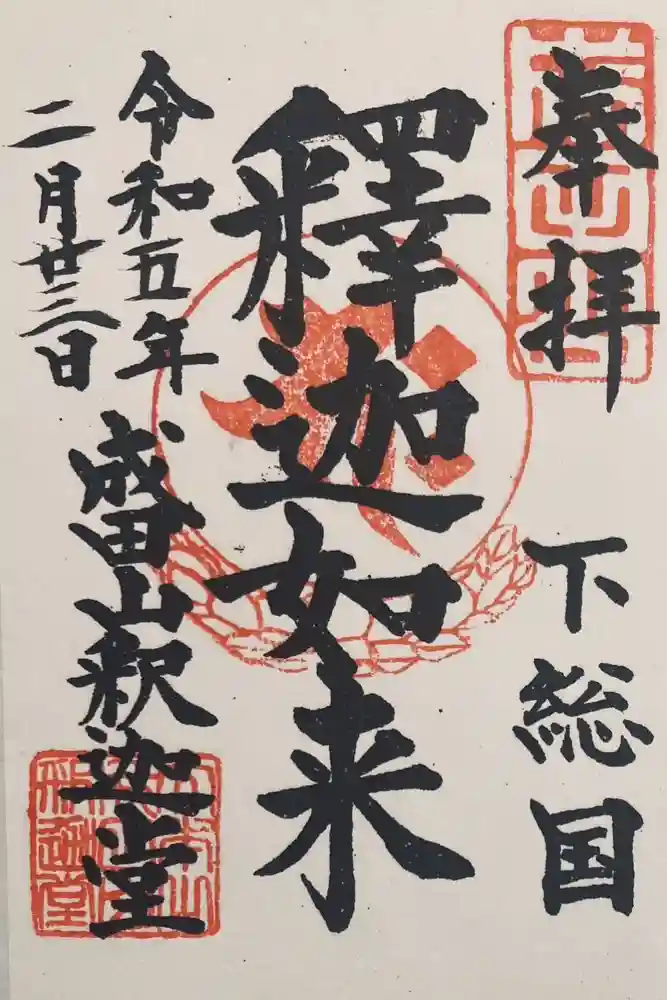 奉拝
下総国
釋迦如来
令和五年
二月廿三日
成田山釈迦堂